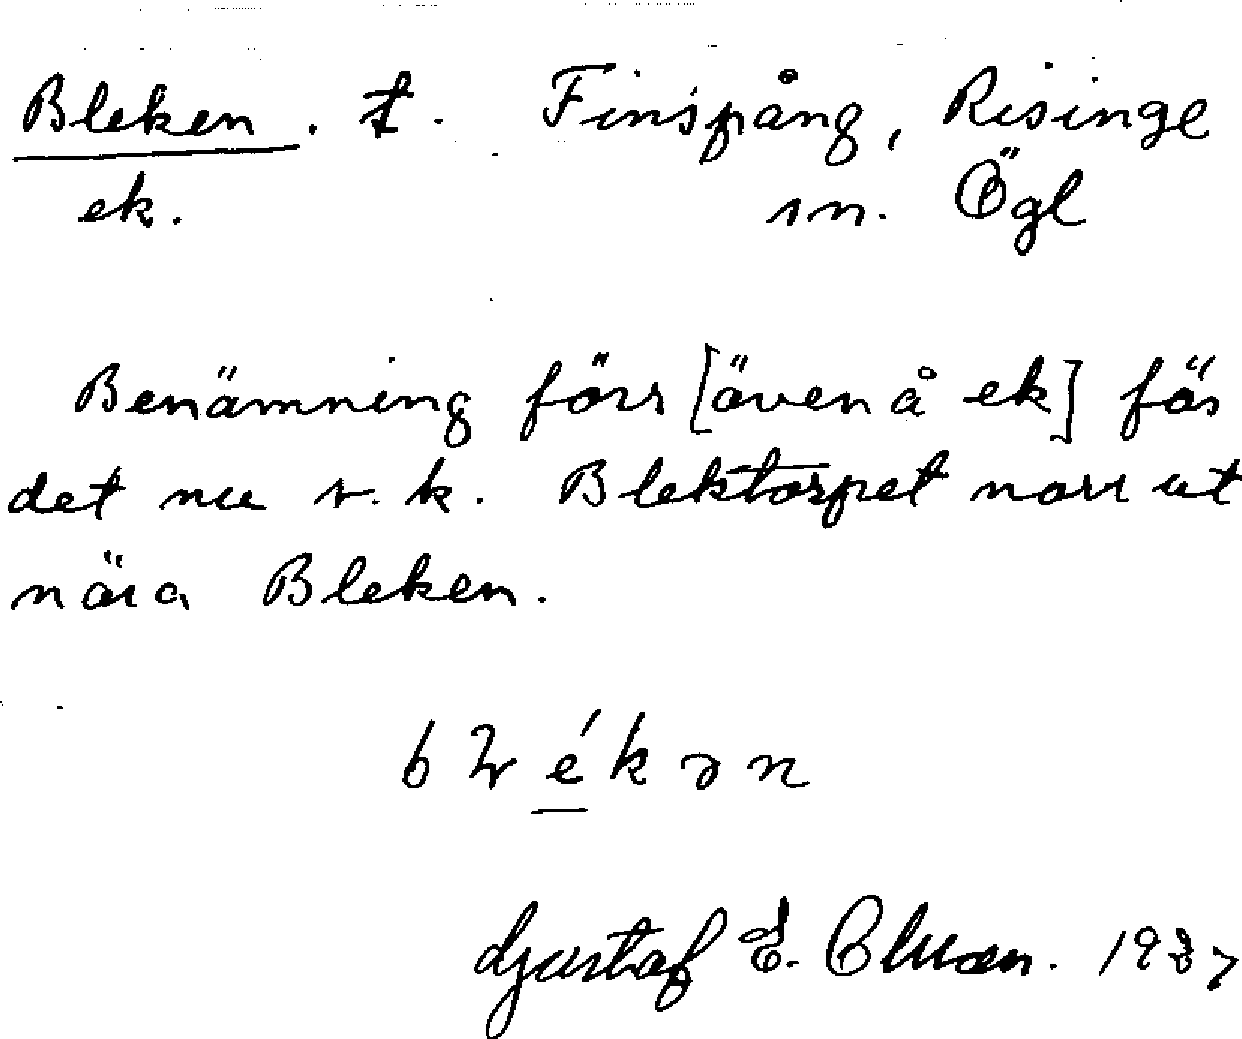 Bleken. †. Finspång, Risinge
ek. sn. Ögl
Benämning förr [även å ek] för
det nu s. k. Blektorpet norr ut
nära Bleken.
Gustaf E. 1937